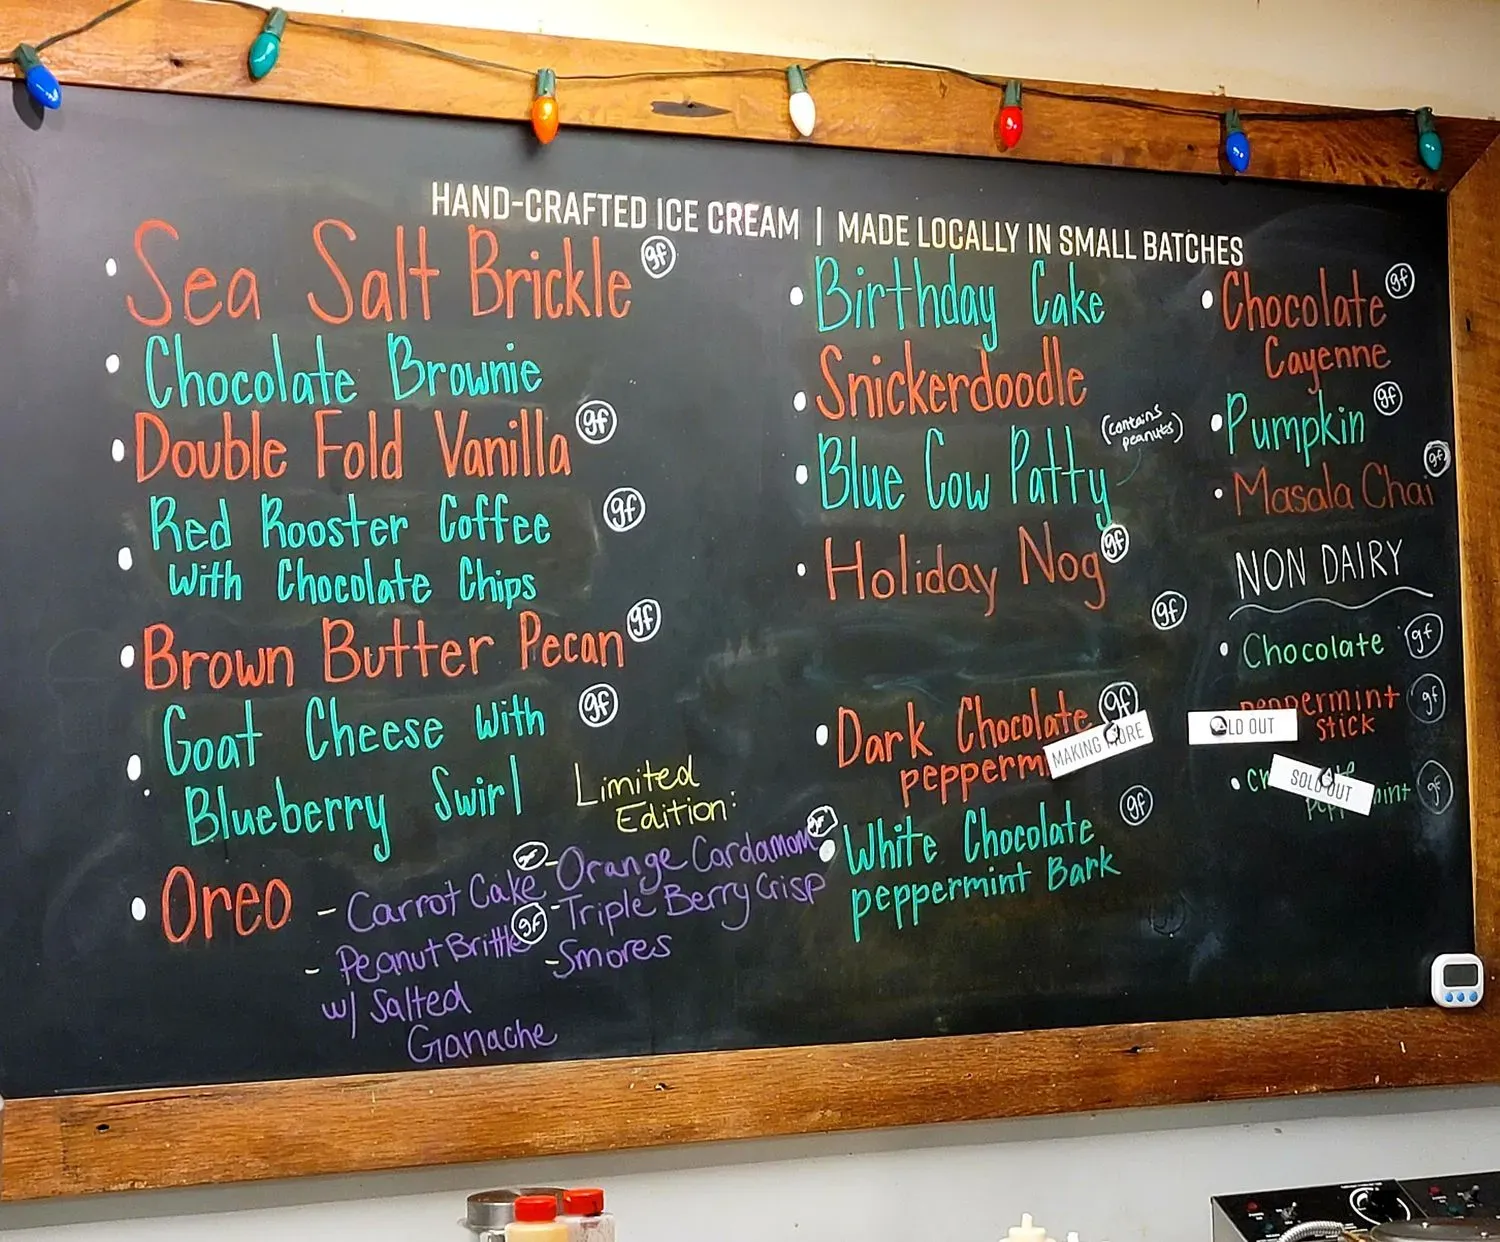 HAND-CRAFTED ICE CREAM | MADE LOCALLY IN SMALL BATCHES
Sea Salt Brickle gf
Chocolate Brownie
Double Fold Vanilla gf
Red Rooster Coffee gf
with Chocolate Chips
Brown Butter Pecan gf
Goat Cheese with gf
Blueberry Swirl
Oreo
Limited
Edition:
- Carrot Cake gf
- Peanut Brittle gf
w/ Salted
Ganache
- Orange Cardamom gf
- Triple Berry Crisp
- Smores
Birthday Cake
Snickerdoodle
Blue Cow Patty
(contains
peanuts)
Holiday Nog gf
gf
Dark Chocolate gf
pepperm
MAKING MORE
White Chocolate gf
peppermint Bark
Chocolate gf
Cayenne
Pumpkin gf
Masala Chai gf
NON DAIRY
Chocolate gf
peppermint gf
stick
SOLD OUT
SOLD OUT
gf